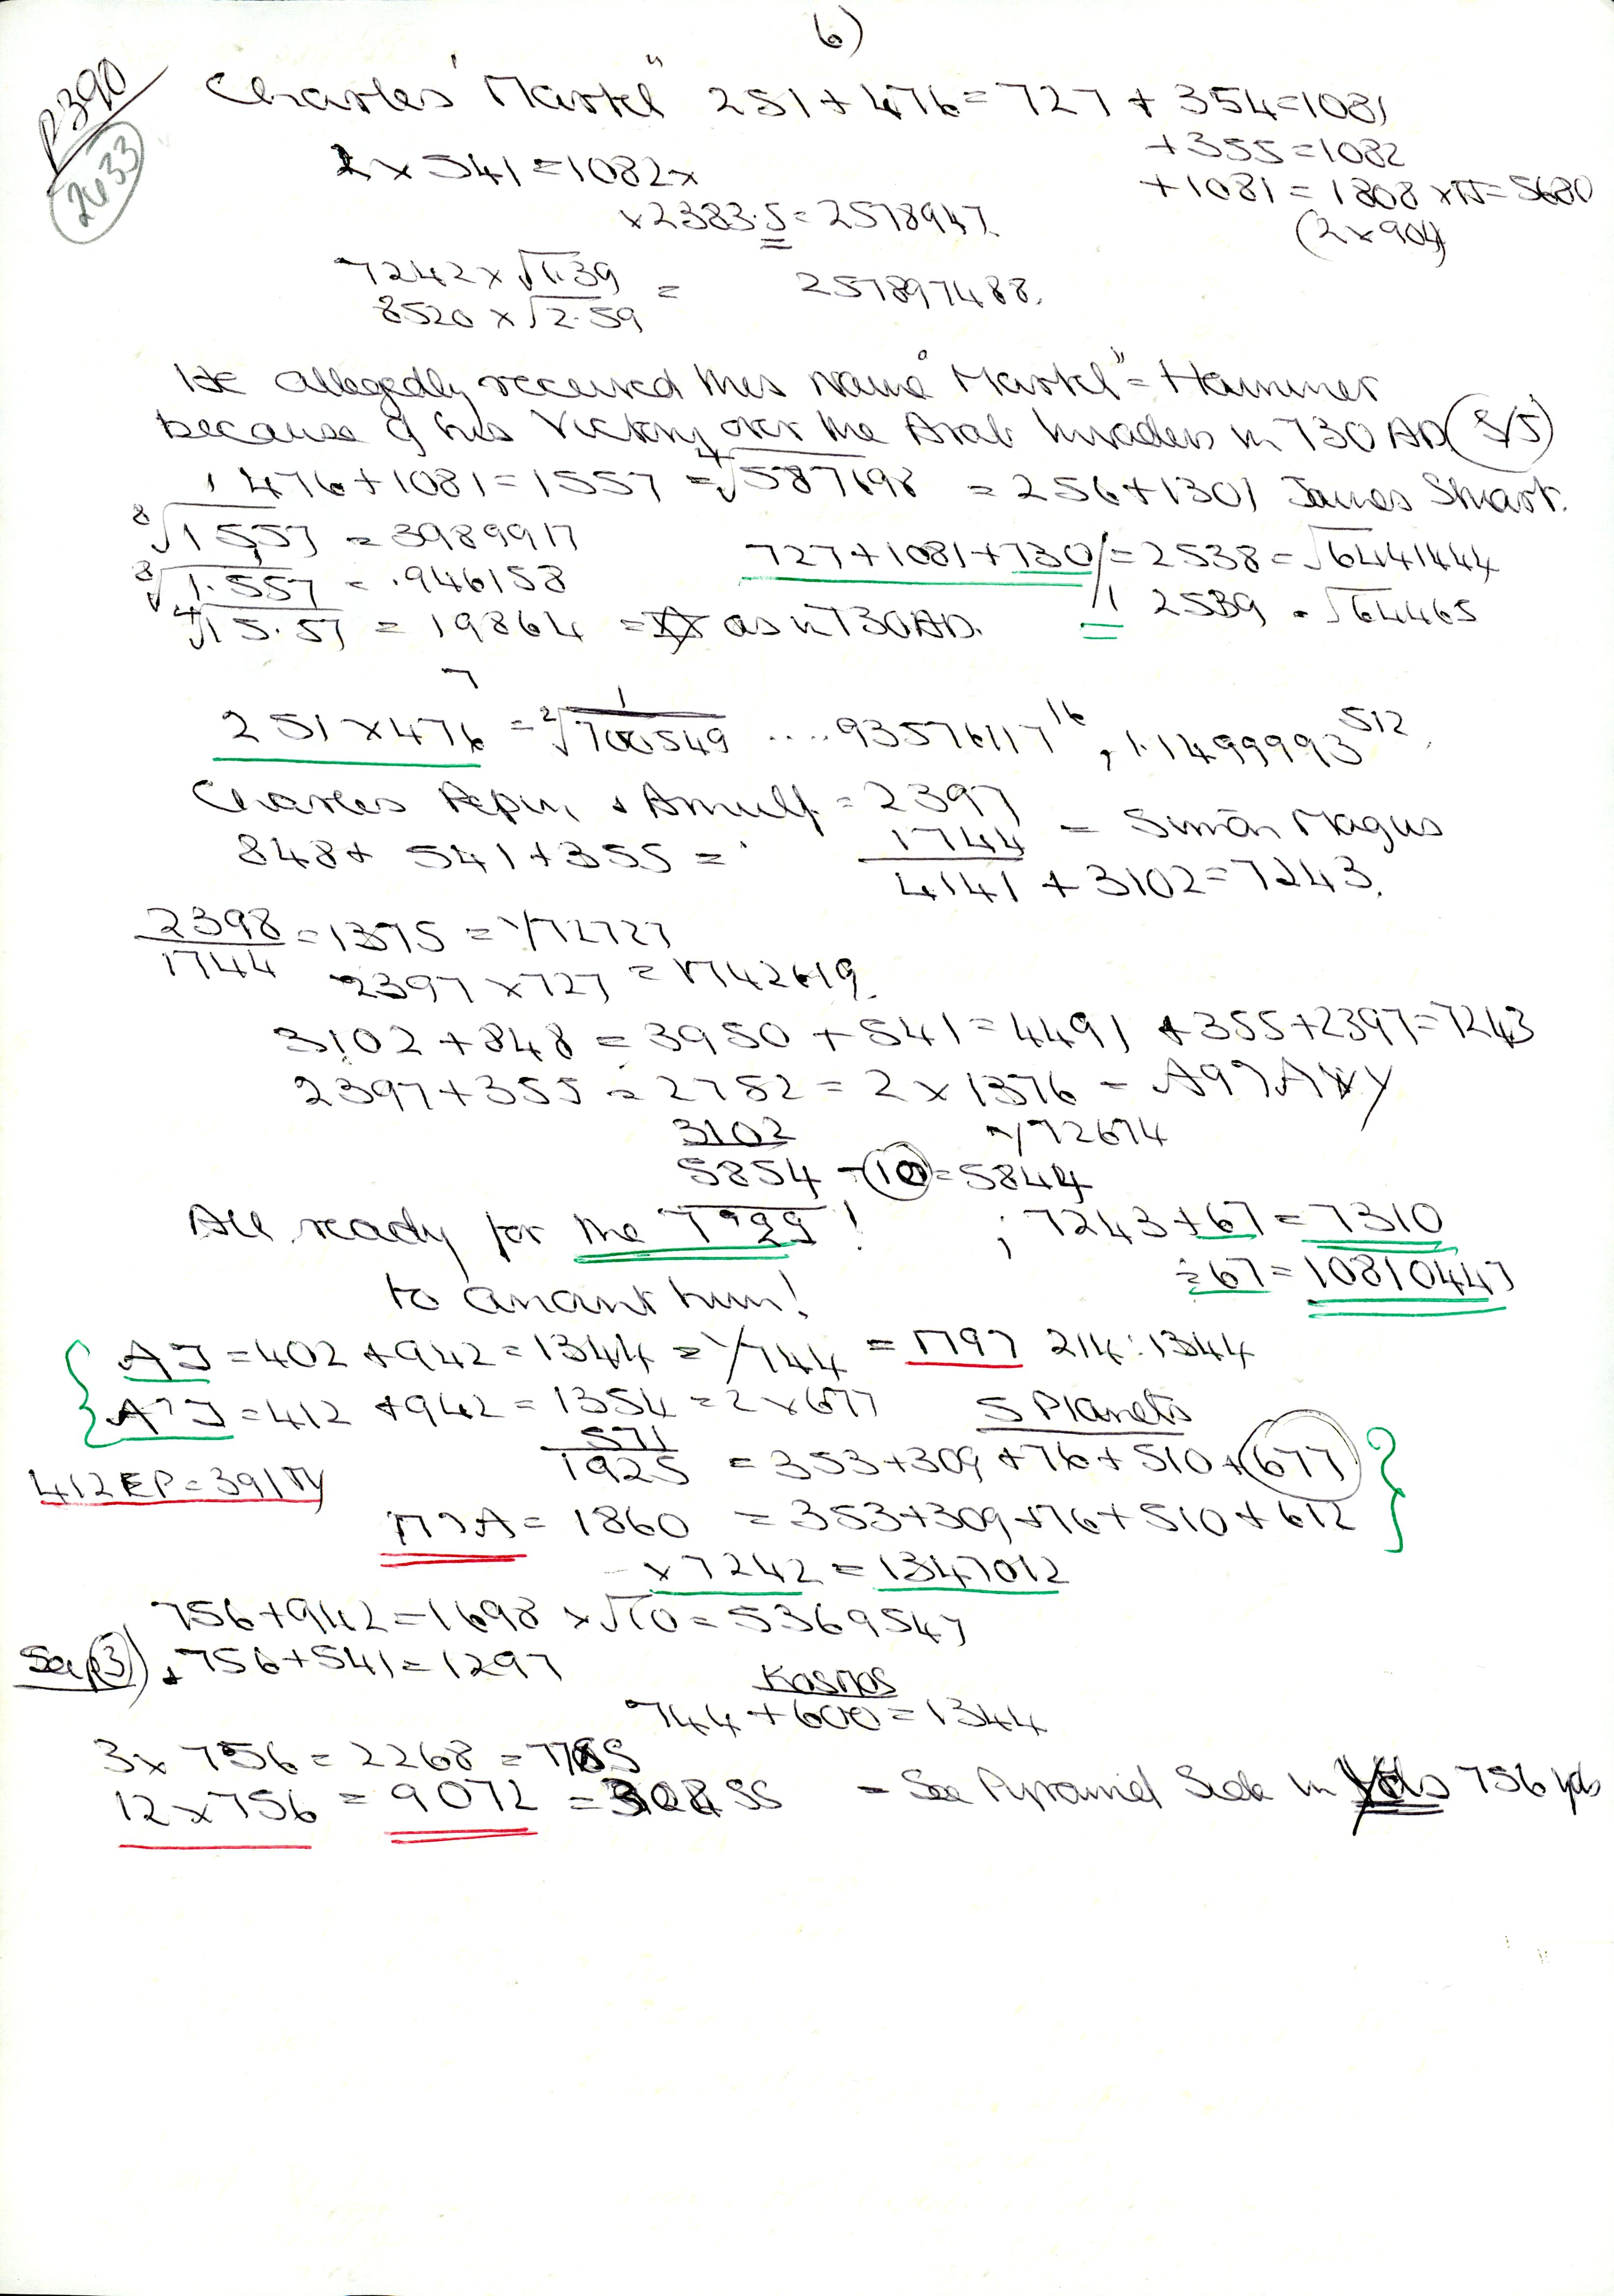 6)
P390
2633
Charles "Martel" 251 + 476 = 727 + 354 = 1081
+ 355 = 1082
2 x 541 = 1082 x
+ 1081 = 1808 x π = 5680
x 2383.5 = 2578947.
(2 x 904)
7242 x √1.39
8520 x √2.59 = 257897488.
He allegedly received this name "Martel" = Hammer
because of his Victory over the Arab Invaders in 730 AD (S/S)
1 476 + 1081 = 1557 = ⁴√587698 = 256 + 1301 James Stuart.
⁸√15,57 = 3989917
727 + 1081 + 730 / = 2538 = √6441444
⁸√1.557 = .946158
/1 2539 = √64465
⁴√15.57 = 19864 = as in 730 AD.
7
251 x 476 = ²√700549 .... 93576117¹⁶, 1.1499993⁵¹²,
Charles Pepin & Arnulf = 2397
848 + 541 + 355 = 1744 = Simon Magus
4141 + 3102 = 7243.
2398/1744 = 1375 = Y72727
2397 x 727 = 1742619
3102 + 848 = 3950 + 541 = 4491 + 355 + 2397 = 7243
2397 + 355 = 2752 = 2 x 1376 =
3102 Y72674
5854 - 10 = 5844
All ready for the !
; 7243 + 67 = 7310
÷ 67 = 10810447
to anoint him!
= 402 + 942 = 1344 = Y744 = 1797 214 : 1344
= 412 + 942 = 1354 = 2 x 677 5 Planets
571
1925 = 353 + 309 + 76 + 510 + 677
412 EP = 391 πy
= 1860 = 353 + 309 + 76 + 510 + 612
x 7242 = 1347012
756 + 942 = 1698 x √10 = 5369547
See p 3) + 756 + 541 = 1297
Kosmos
744 + 600 = 1344
3 x 756 = 2268 =
12 x 756 = 9072 = SS = See Pyramid Side in 756 yds